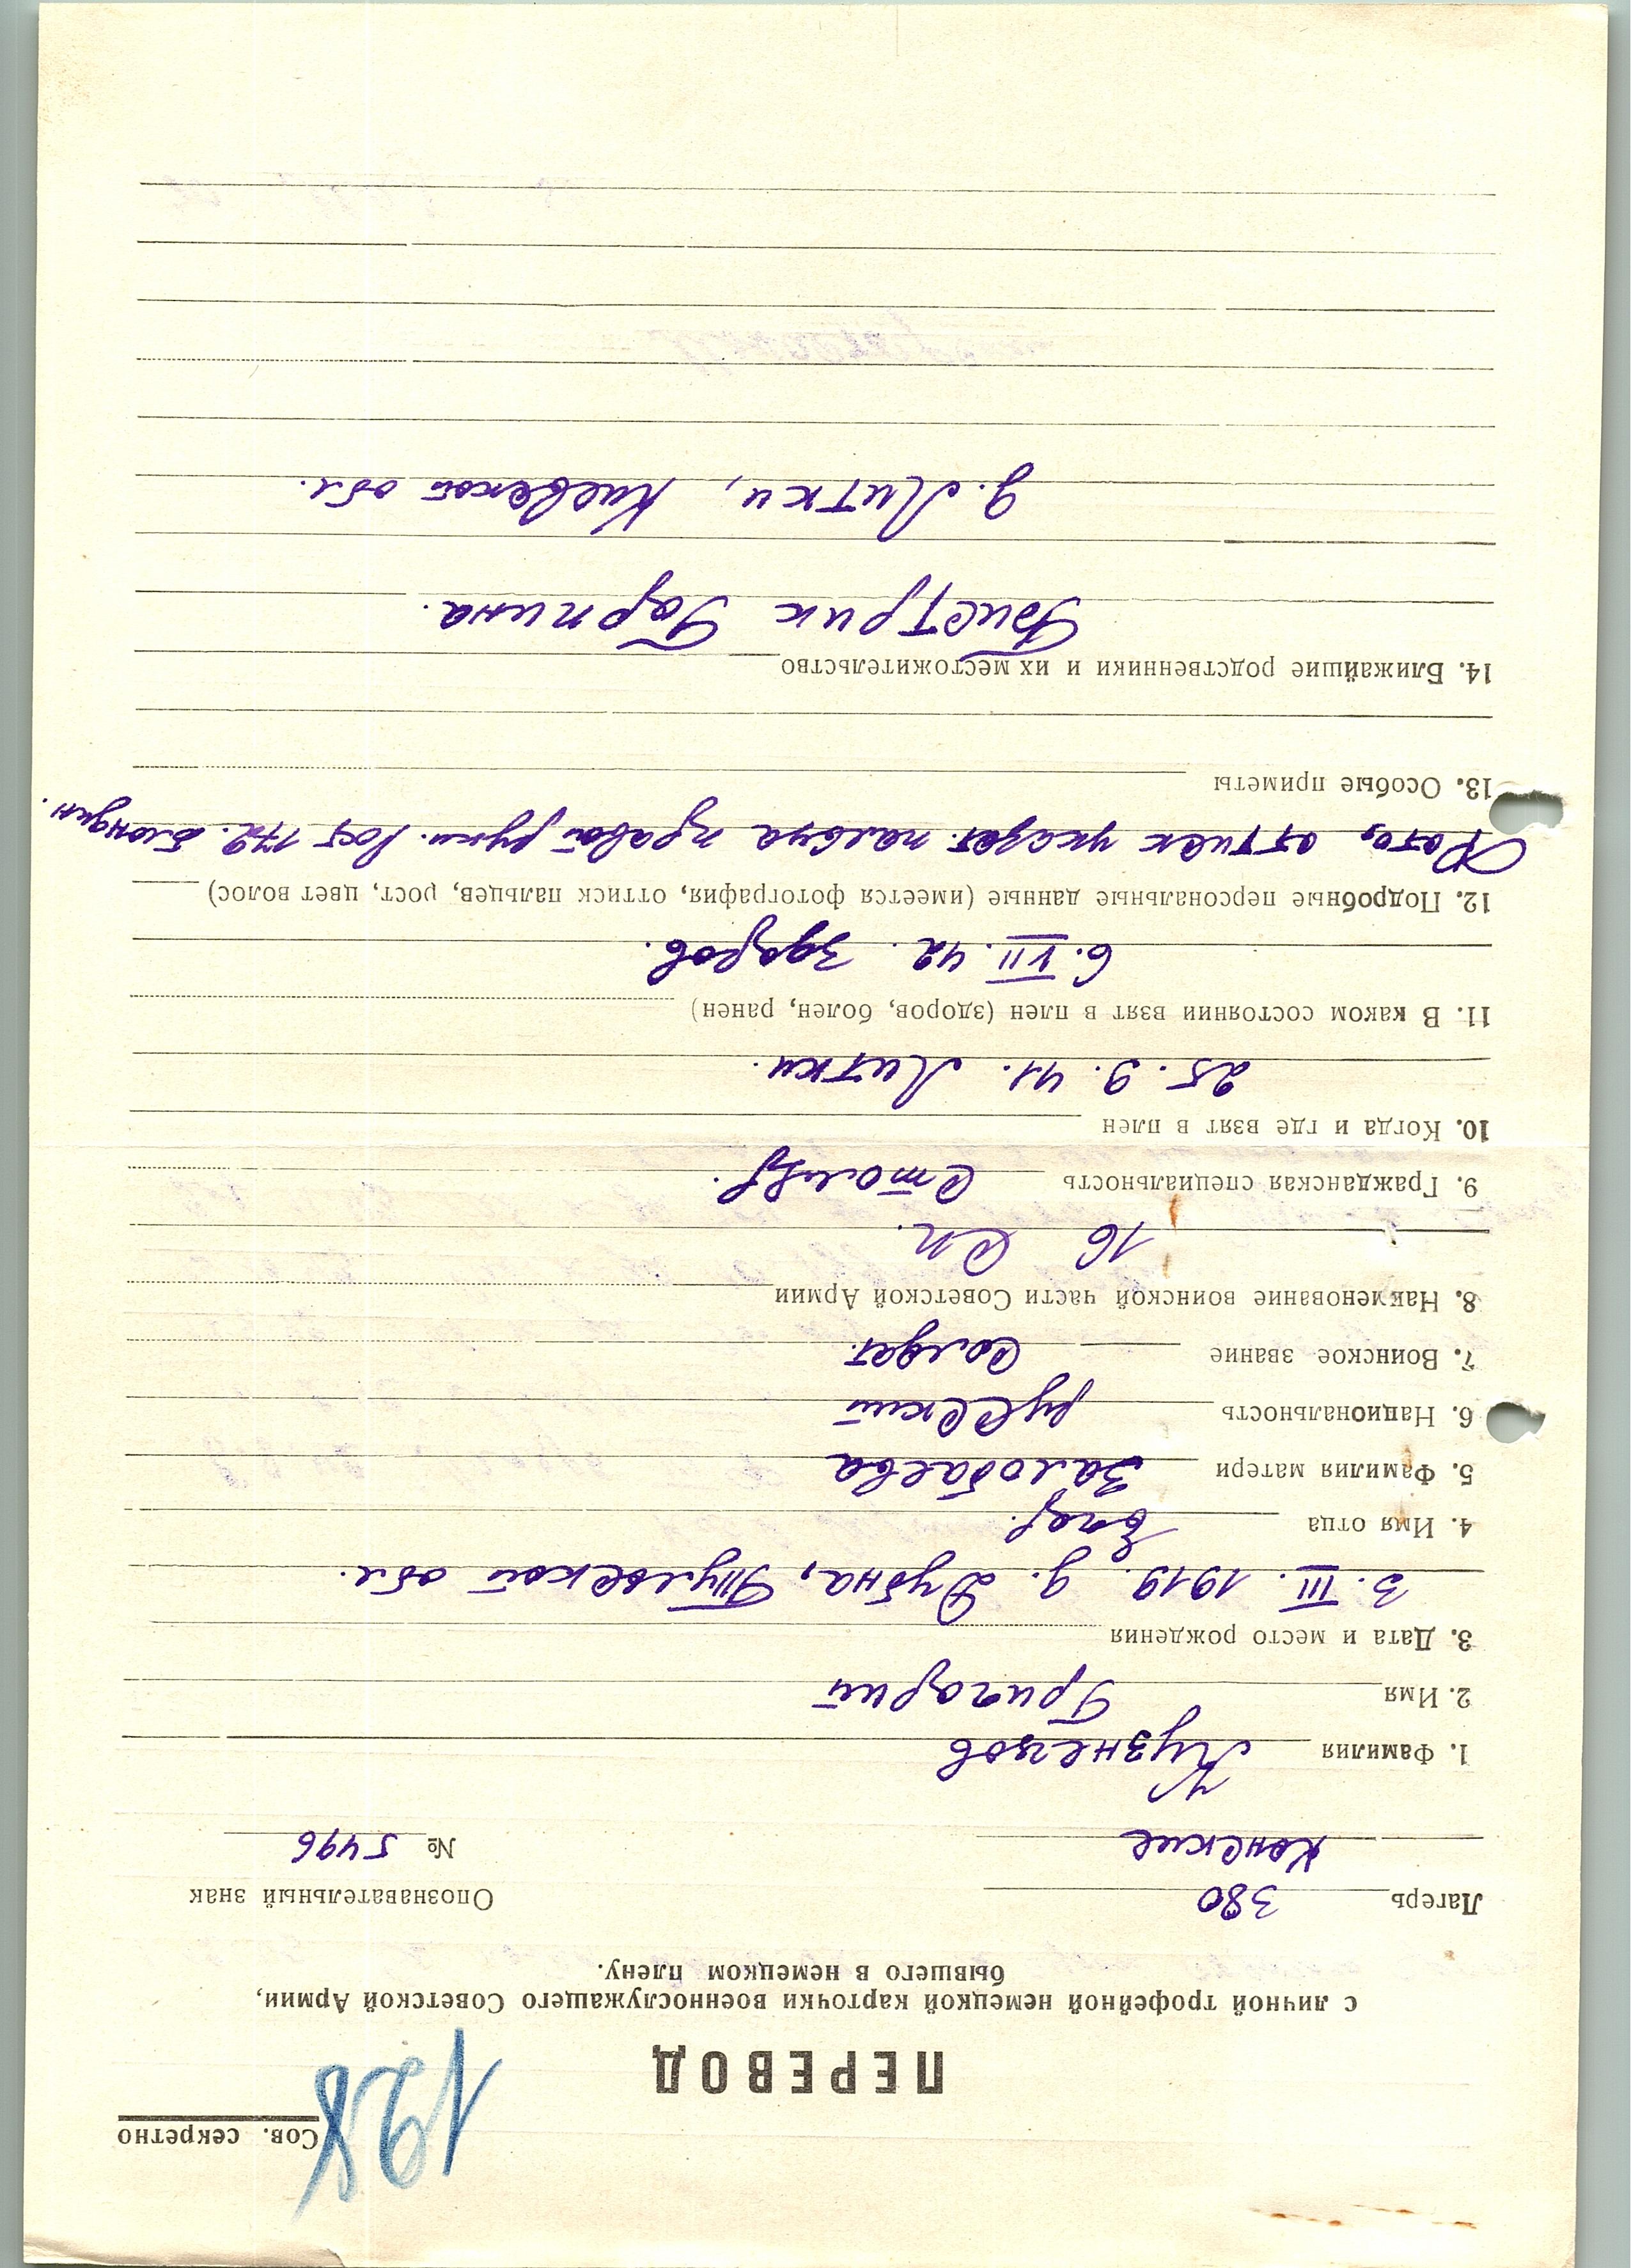 Сов. секретно
128
ПЕРЕВОД
с личной трофейной немецкой карточки военнослужащего Советской Армии,
бывшего в немецком плену.
Лагерь 380 Опознавательный знак
Конские № 5496
1. Фамилия Кузнецов
2. Имя Григорий
3. Дата и место рождения
3. III. 1919. д. Дубна, Тульской обл.
4. Имя отца Егор.
5. Фамилия матери Залобаева
6. Национальность русский
7. Воинское звание Солдат.
8. Наименование воинской части Советской Армии
16 Сп.
9. Гражданская специальность Столяр.
10. Когда и где взят в плен
25. 9. 41. Литки.
11. В каком состоянии взят в плен (здоров, болен, ранен)
6. VII. 42. здоров.
12. Подробные персональные данные (имеется фотография, оттиск пальцев, рост, цвет волос)
Фото, оттиск указат. пальца правой руки. Рост 172. блондин.
13. Особые приметы
14. Ближайшие родственники и их местожительство
Бистрик Горпина.
д. Литки, Киевской обл.